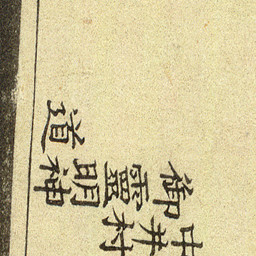 中井村
御靈明神
道